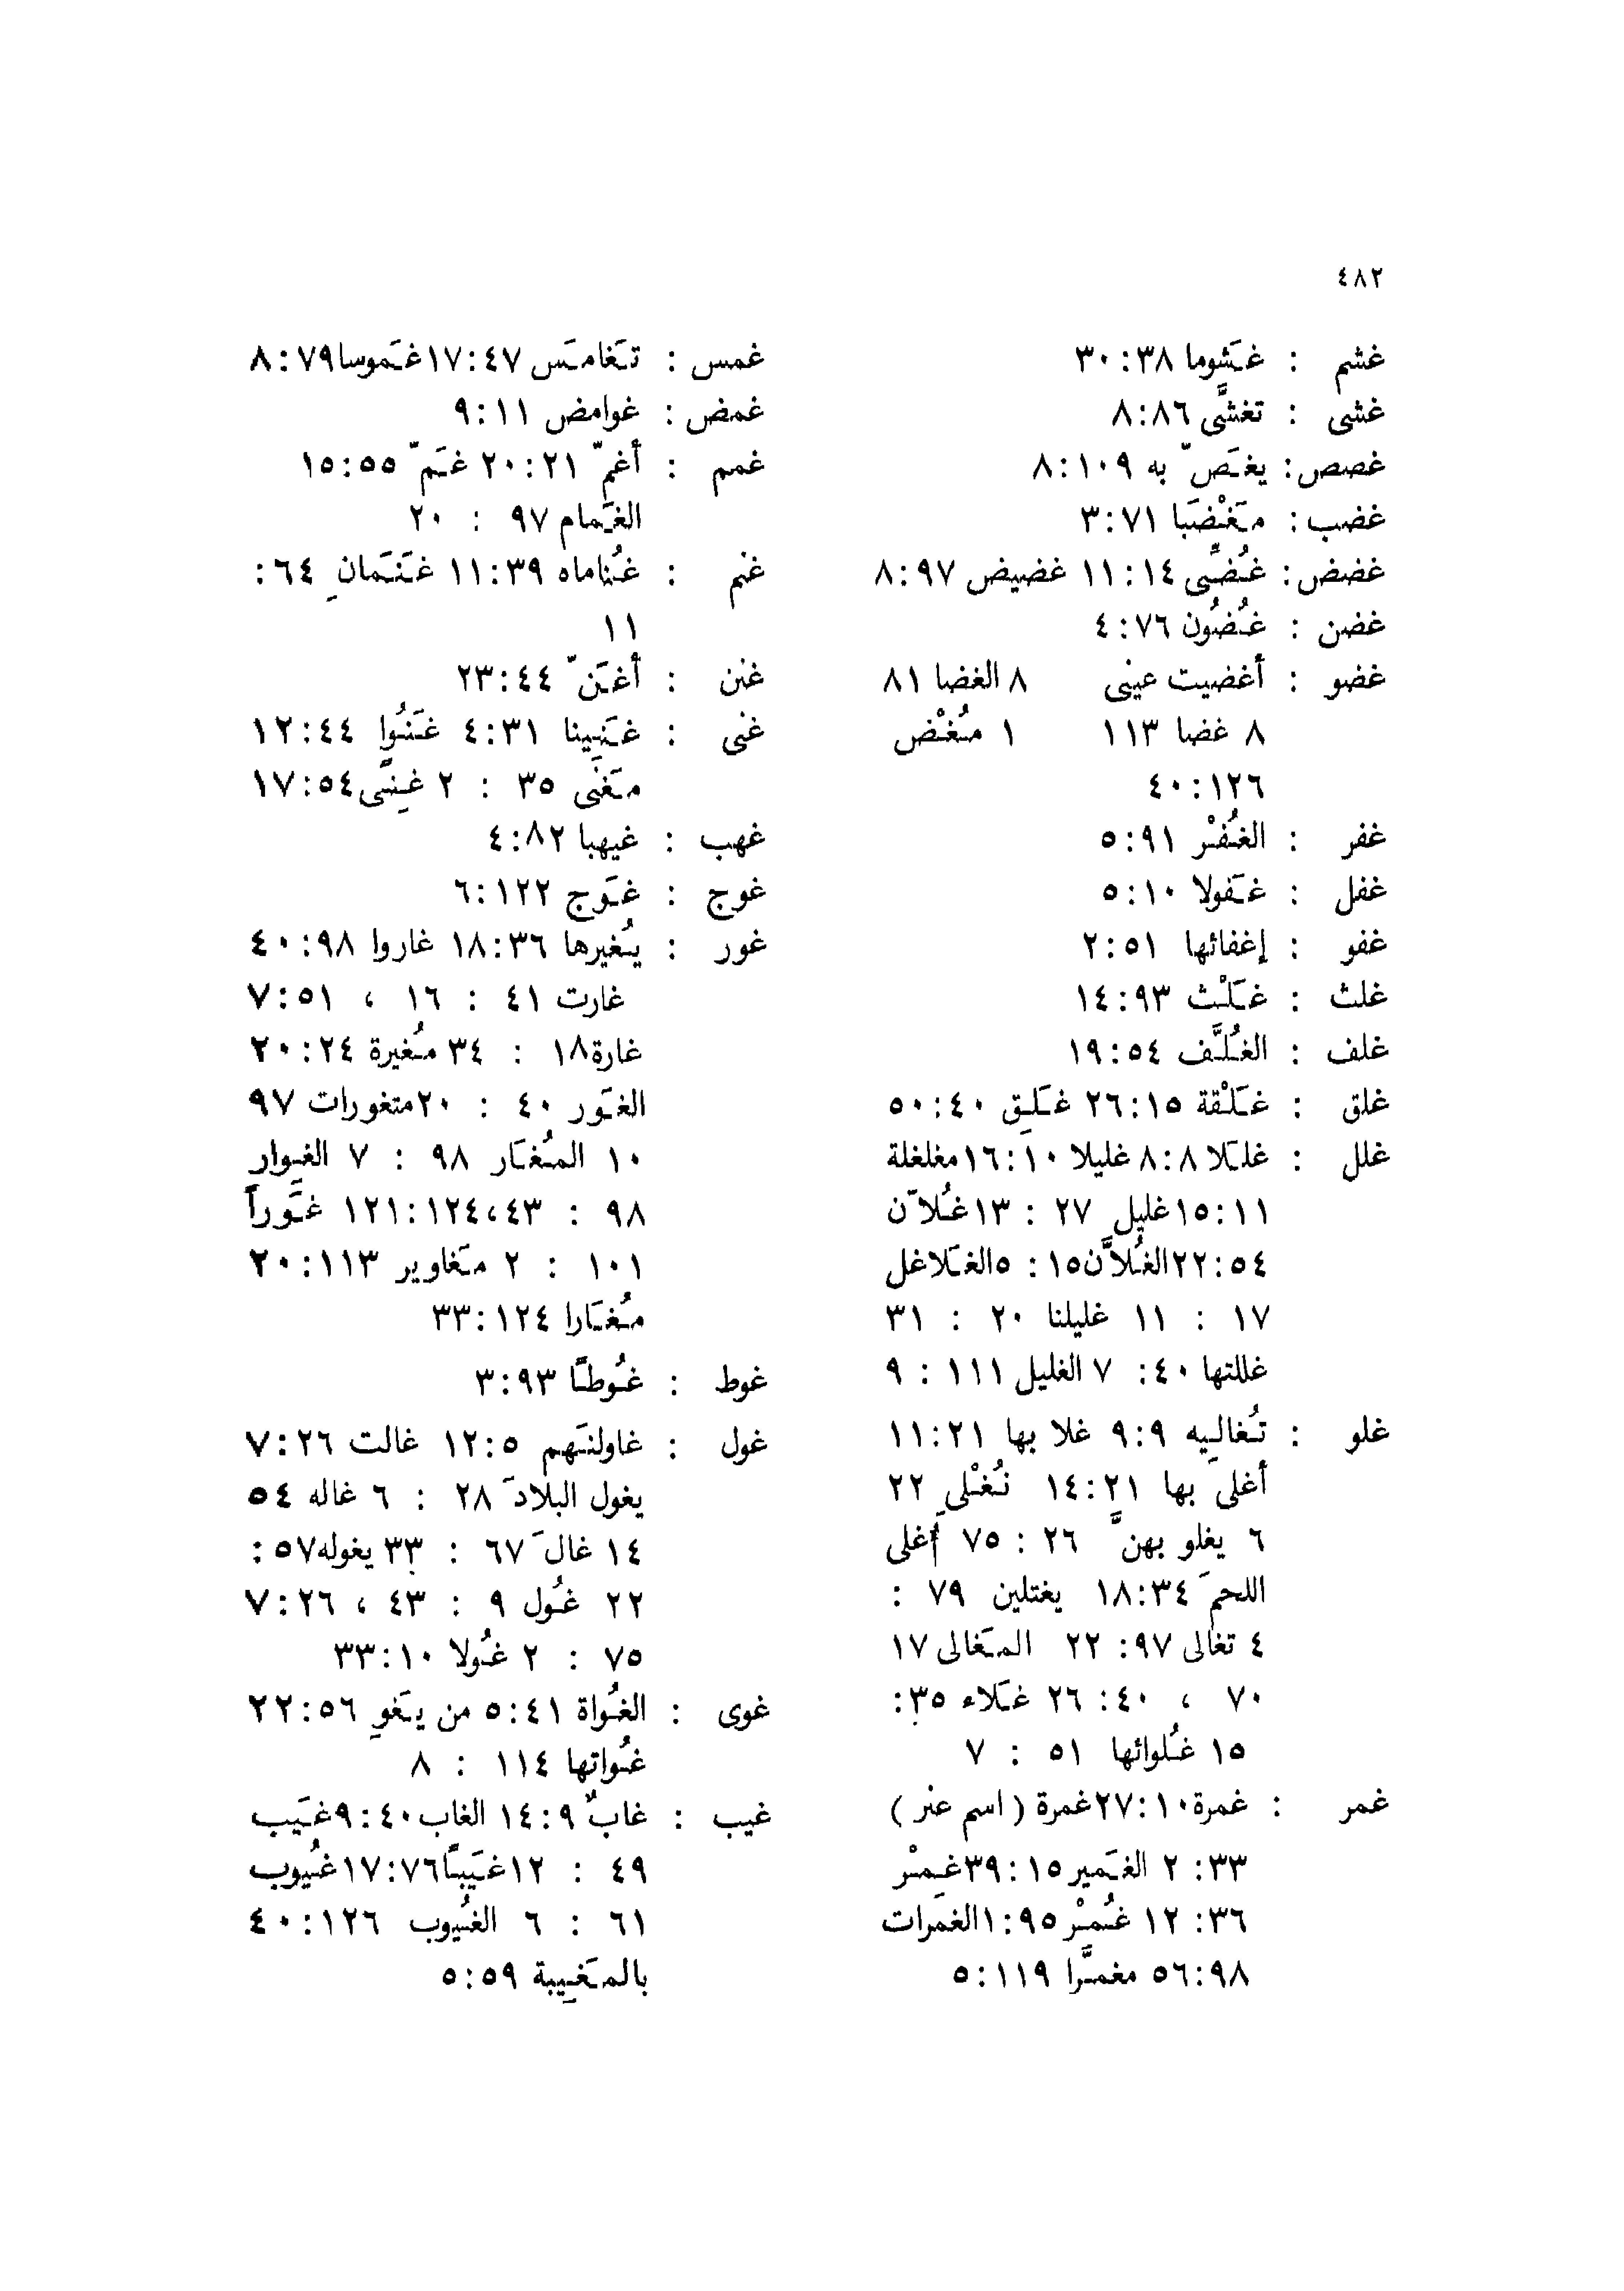 ٤٨٢
غشم : غَشوما ٣٨:٣٠
غشى : تغشَّى ٨٦:٨
غصص: يغَصّ به ١٠٩:٨
غضب: مَغْضَبا ٧١:٣
غضض: غُضِّى ١٤:١١ غضيض ٩٧:٨
غضن : غُضُون ٧٦:٤
غضو : أغضيت عينى ٨ الغضا ٨١
٨ غضا ١١٣ ١ مُغْض
١٢٦:٤٠
غفر : الغُفْر ٩١:٥
غفل : غَفولا ١٠:٥
غفو : إغفائها ٥١:٢
غلث : غَلْث ٩٣:١٤
غلف : الغُلَّف ٥٤:١٩
غلق : غَلْقة ١٥:٢٦ غَلِق ٤٠:٥٠
غلل : غلَلا ٨:٨ غليلا ١٠:١٦ مغلغلة
١١:١٥ غليل ٢٧ : ١٣ غُلاّن
٥٤:٢٢ الغُلاَّن ١٥ : ٥ الغَلاغل
١٧ : ١١ غليلنا ٢٠ : ٣١
غللتها ٤٠: ٧ الغليل ١١١ : ٩
غلو : تُغالِيه ٩:٩ غلا بها ٢١:١١
أغلى بها ٢١:١٤ نُغْلِي ٢٢
٦ يغلو بهنَّ ٢٦ : ٧٥ أغلى
اللحمَ ٣٤:١٨ يغتلين ٧٩ :
٤ تغالى ٩٧: ٢٢ المَغالى ١٧
٧٠ ، ٤٠: ٢٦ غَلاء ٣٥:
١٥ غُلوائها ٥١ : ٧
غمر : غمرة ١٠:٢٧ غمرة ( اسم عنز )
٣٣: ٢ الغَمير ١٥:٣٩ غِمْر
٣٦: ١٢ غُمْر ٩٥:١ الغمرات
٩٨:٥٦ مغمَّرا ١١٩:٥
غمس : تَغامَس ٤٧:١٧ غَموسا ٧٩:٨
غمض : غوامض ١١:٩
غمم : أغمّ ٢١:٢٠ غَمّ ٥٥:١٥
الغَمام ٩٧ : ٢٠
غنم : غُناماه ٣٩:١١ غَنَمانِ ٦٤:
١١
غنن : أغَنّ ٤٤:٢٣
غنى : غَنِينا ٣١:٤ غَنُوا ٤٤:١٢
مَغنى ٣٥ : ٢ غِنًى ٥٤:١٧
غهب : غيهبا ٨٢:٤
غوج : غَوج ١٢٢:٦
غور : يُغيرها ٣٦:١٨ غاروا ٩٨:٤٠
غارت ٤١ : ١٦ ، ٥١:٧
غارة ١٨ : ٣٤ مُغيرة ٢٤:٢٠
الغَور ٤٠ : ٢٠ متغورات ٩٧
١٠ المُغَار ٩٨ : ٧ الغِوار
٩٨ : ٤٣، ١٢٤:١٢١ غَوَّراً
١٠١ : ٢ مَغاوير ١١٣:٢٠
مُغَارا ١٢٤:٣٣
غوط : غُوطًا ٩٣:٣
غول : غاولتَهم ٥:١٢ غالت ٢٦:٧
يغول البلادَ ٢٨ : ٦ غاله ٥٤
١٤ غالَ ٦٧ : ٣٣ يغوله ٥٧:
٢٢ غُول ٩ : ٤٣ ، ٢٦:٧
٧٥ : ٢ غُولا ١٠:٣٣
غوى : الغُواة ٤١:٥ من يَغوِ ٥٦:٢٢
غُواتها ١١٤ : ٨
غيب : غابٌ ٩:١٤ الغاب ٤٠:٩ غَيب
٤٩ : ١٢ غَيَبًا ٧٦:١٧ غُيوب
٦١ : ٦ الغُيوب ١٢٦:٤٠
بالمَغِيبة ٥٩:٥